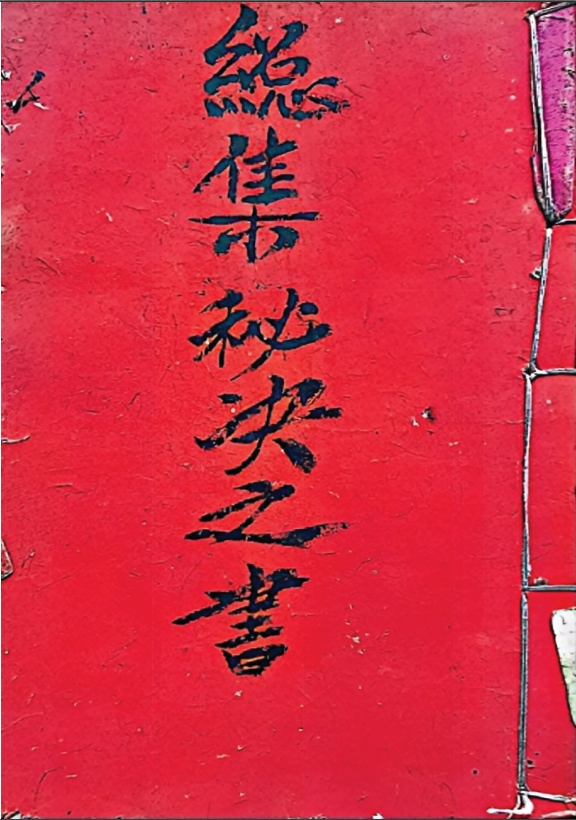 総集秘决之書